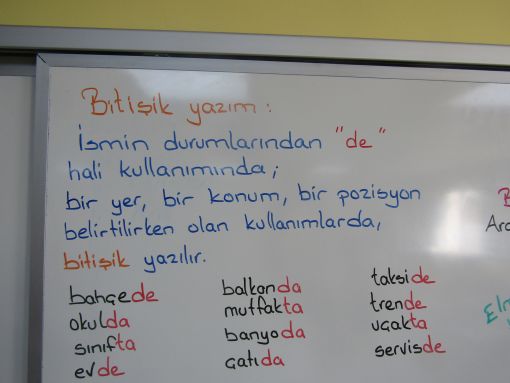 Bitişik yazım:
İsmin durumlarından "de"
hali kullanımında;
bir yer, bir konum, bir pozisyon
belirtilirken olan kullanımlarda,
bitişik yazılır.
bahçede
okulda
sınıfta
evde
balkonda
mutfakta
banyoda
çatıda
takside
trende
uçakta
serviste